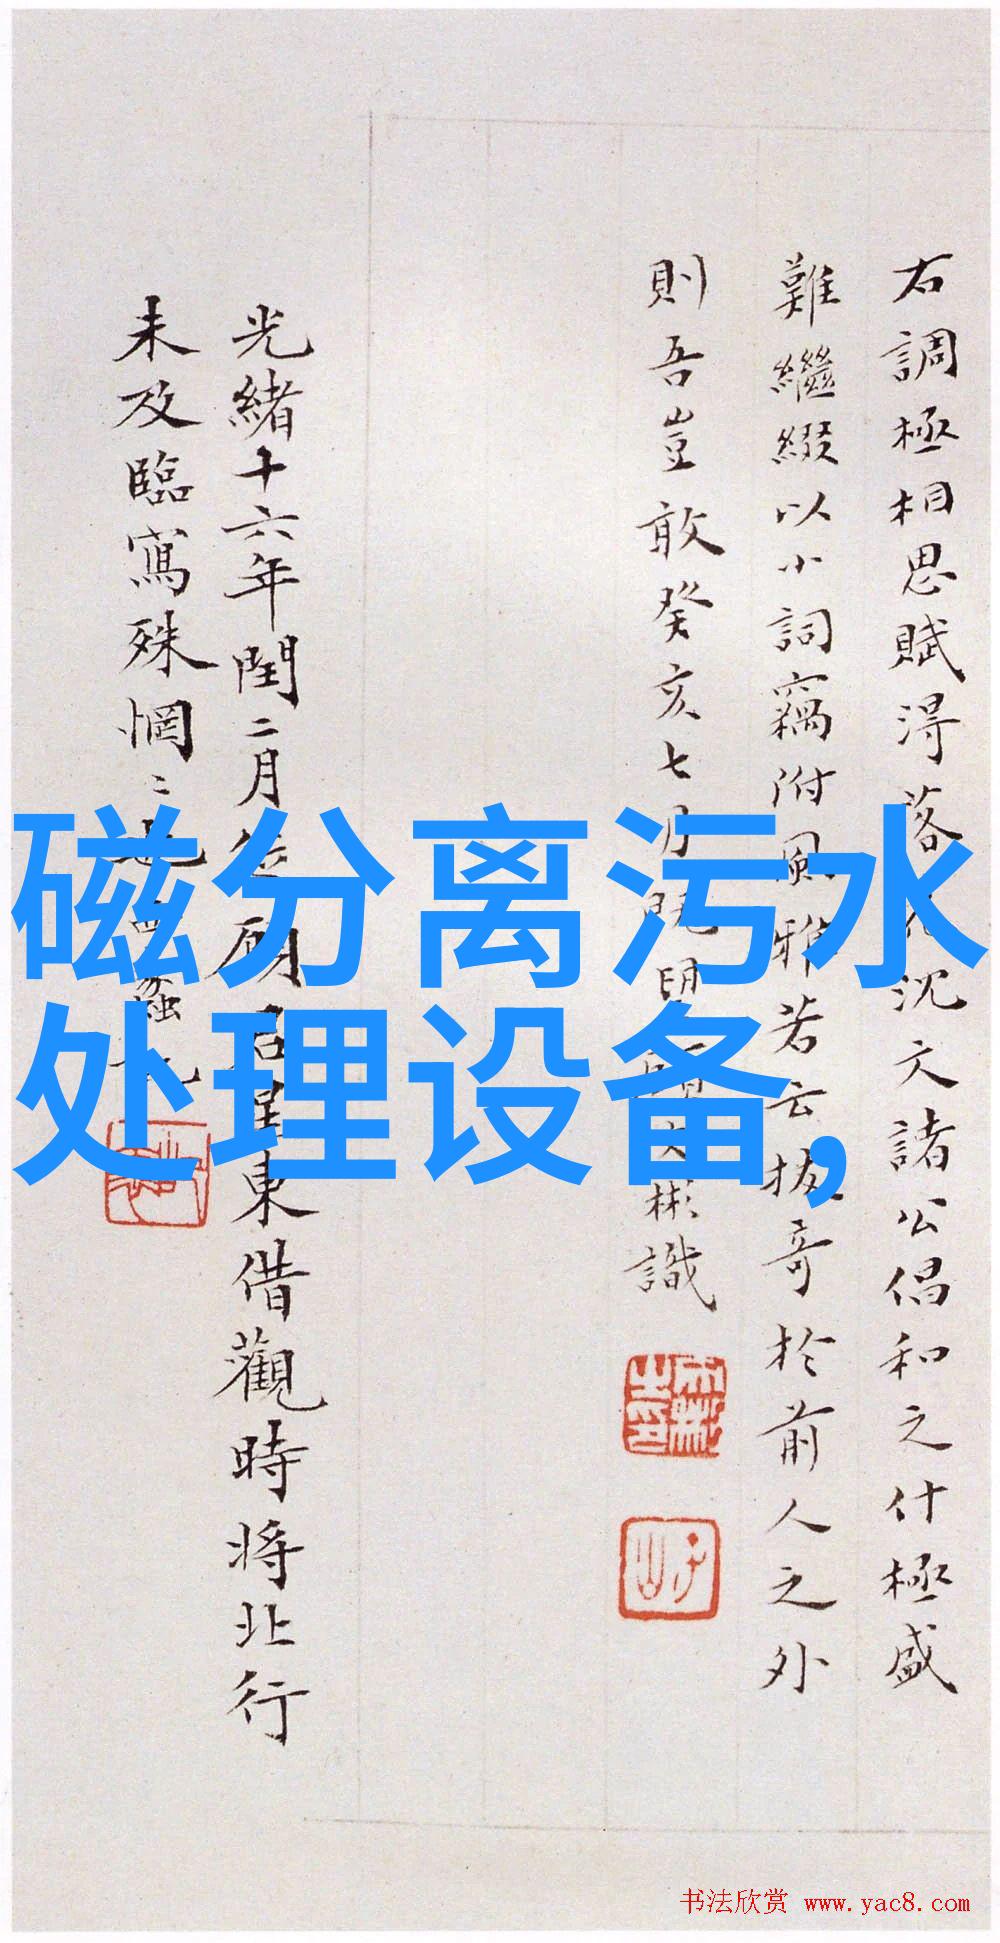 右調極相思賦得落花沈文諸公倡和之什極盛
難繼綴以小詞竊附風雅若云拔奇於前人之外
則吾豈敢癸亥七月既望顧大彬識
光緒十六年閏二月從碩君星東借觀時將北行
未及臨寫殊惘〻也
磁分离污水
处理设备,
书法欣赏 www.yac8.com